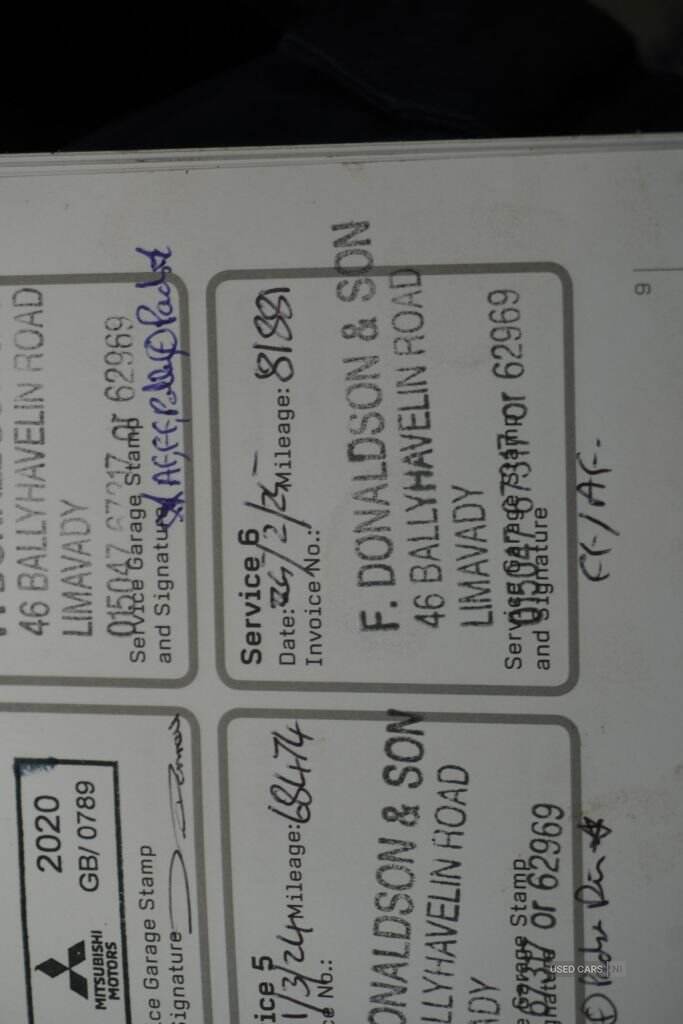 46 BALLYHAVELIN ROAD
LIMAVADY
015047 67317 or 62969
Service Garage Stamp
and Signature
Service 6
Date: 24/2/25 Mileage: 81881
Invoice No.:
F. DONALDSON & SON
46 BALLYHAVELIN ROAD
LIMAVADY
015047 67317 or 62969
Service Garage Stamp
and Signature
2020
GB/0789
MITSUBISHI
MOTORS
ice Garage Stamp
ignature
ice 5
1/3/24 Mileage: 68474
ce No.:
ONALDSON & SON
LLYHAVELIN ROAD
ADY
67317 or 62969
e Garage Stamp
nature
9
USED CARS NI